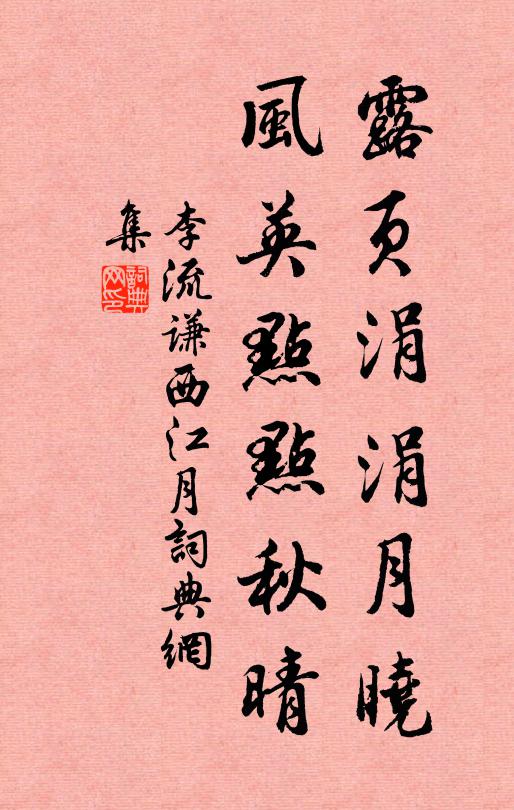 露頁涓涓月曉
風英點點秋晴
李流谦西江月詞典網
集
詞典網印